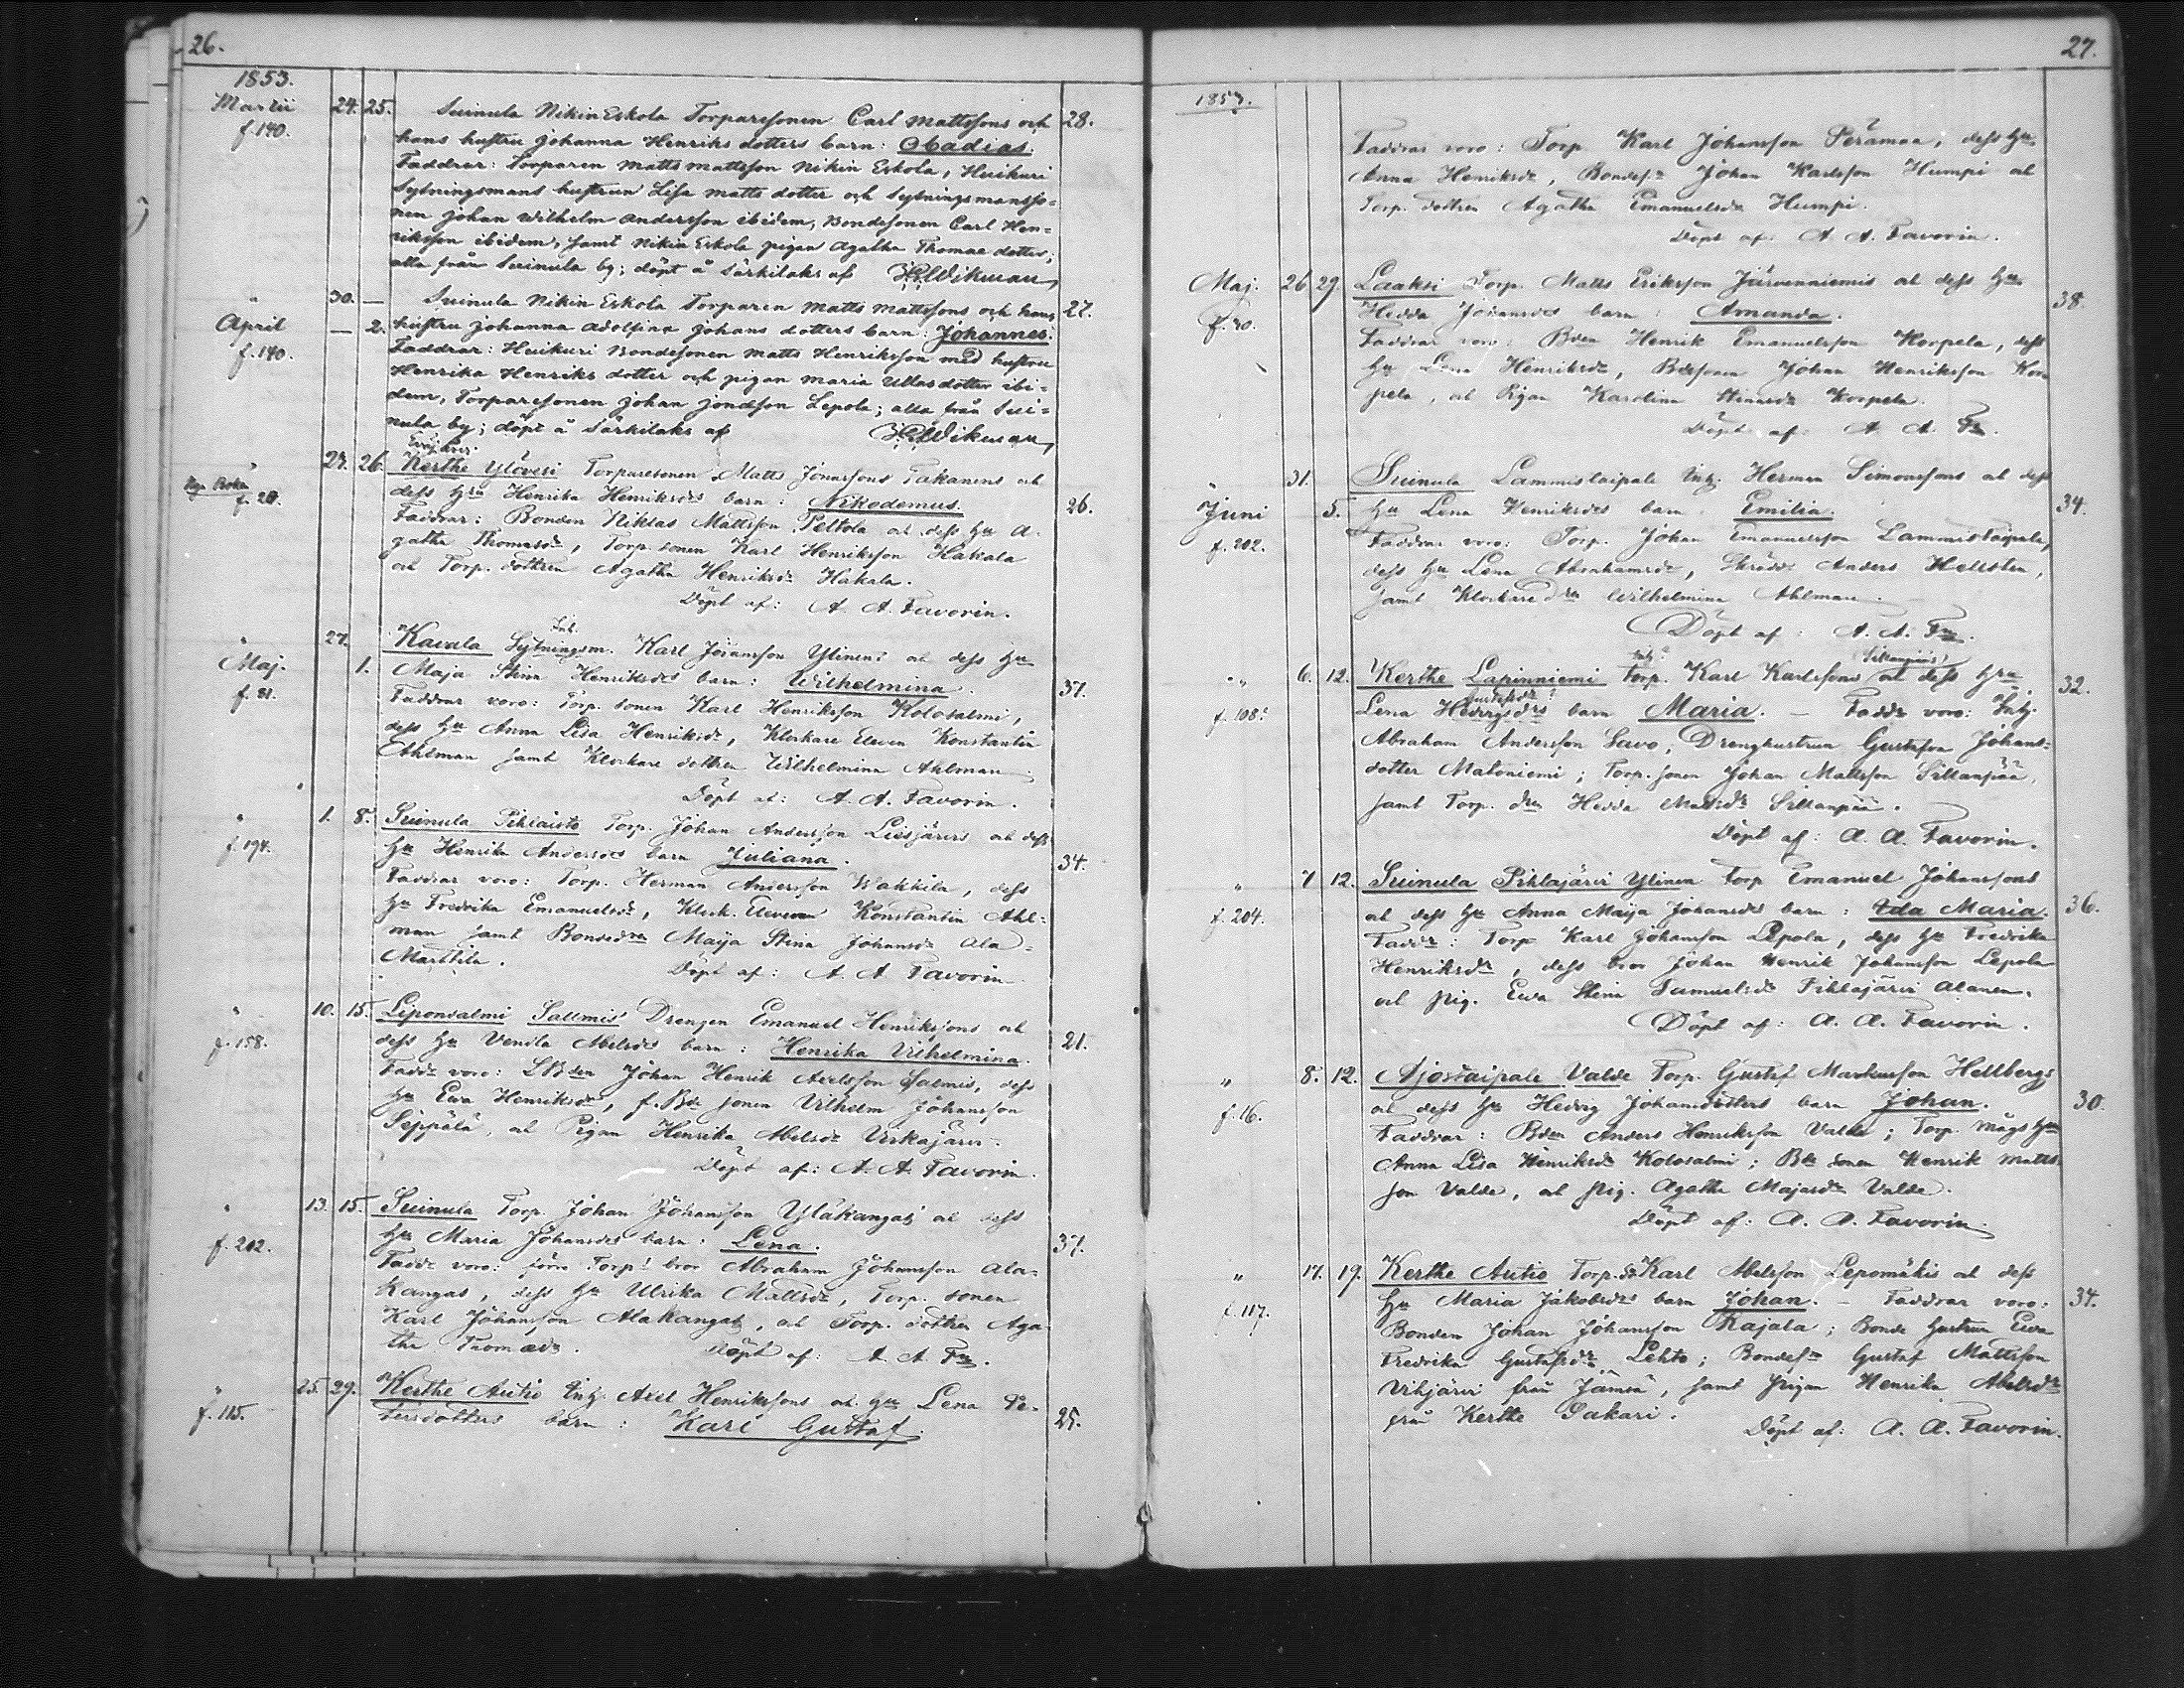 26.
1853.
Martii 24. 25. Suinula Nikin Eskola Torparesonen Carl Mattssons och 28.
f. 140. hans hustru Johanna Henriks dotters barn: Obadias.
Faddrar: Torparen Matts Mattsson Nikin Eskola, Huikuri
Sytningsmans hustrun Lisa Matts dotter och Sytningsmansso-
nen Johan Wilhelm Andersson ibidem, Bondesonen Carl Hen-
riksson ibidem, samt Nikin Eskola pigan Agatha Thomae dotter;
alla från Suinula by; döpt å Särkilaks af Wikman
" 30. — Suinula Nikin Eskola Torparen Matts Mattssons och hans 27.
April — 2. hustru Johanna Adolfina Johans dotters barn: Johannes.
f. 140. Faddrar: Huikuri Bondesonen Matts Henriksson med hustru
Henrika Henriks dotter och pigan Maria Ullas dotter ibi-
dem, Torparesonen Johan Lepola; alla från Sui-
nula by; döpt å Särkilaks af Wikman
" 27. 26. Kerthe Ylöveri Torparesonen Matts Jonassons Takanens och
f. 20. dess Hru Henrika Henriksdrs barn: Nikodemus. 26.
Faddrar: Bonden Niklas Mattsson Peltola och dess Hu A-
gatha Thomasdr, Torp. sonen Karl Henriksson Hakala
och Torp. dottren Agatha Henriksdr Hakala.
Döpt af: A. A. Favorin.
" 27. Kavala Sytningsm. Inh. Karl Johansson Ylinens och dess Hu
Maj. 1. Maja Stina Henriksdrs barn: Wilhelmina. 37.
f. 81. Faddrar voro: Torp. sonen Karl Henriksson Kolosalmi,
dess Hu Anna Lisa Henriksdr, Klockare Eleven Konstantin
Ahlman samt Klockare dottren Wilhelmina Ahlman
Döpt af: A. A. Favorin.
" 1. 8. Suinula Pihlaisto Torp. Johan Andersson Liesjärvis och dess
f. 194. Hu Henrika Andersdrs barn Juliana. 34.
Faddrar voro: Torp. Herman Andersson Wakkila, dess
Hu Fredrika Emanuelsdr, Klock. Eleven Konstantin Ahl-
man samt Bondedrn Maija Stina Johansdr Ala-
Marttila. Döpt af: A. A. Favorin
" 10. 15. Liponsalmi Salmis Drengen Emanuel Henrikssons och
f. 158. dess Hu Vendla Abelsdrs barn: Henrika Vilhelmina. 21.
Faddr voro: Johan Henrik Axelsson Salmis, dess
Hu Ewa Henriksdr, f. Bde sonen Vilhelm Johansson
Seppälä, och Pigan Henrika Abelsdr Virkajärvi.
Döpt af: A. A. Favorin.
" 13. 15. Suinula Torp. Johan Johansson Yläkangas och dess
f. 202. Hu Maria Johansdrs barn: Lena. 37.
Faddr voro: förre Torps bror Abraham Johansson Ala-
kangas, dess Hu Ulrika Mattsdr, Torp. sonen
Karl Johansson Alakangas, och Torp. dottren Aga-
tha Thomædr. Döpt af: A. A. Fn.
" 25. 29. Kerthe Autio Inh. Axel Henrikssons och Hu Lena Pe-
f. 115. tersdotters barn: Karl Gustaf. 25.
27.
1853.
Faddrar voro: Torp Karl Johansson Perämaa, dess Hu
Anna Henriksdr, Bondes. Johan Karlsson Humpi och
Torp. dottren Agatha Emanuelsdr Humpi.
Döpt af: A. A. Favorin.
Maj. 26 29 Laaksi Torp. Matts Eriksson Järvenniemis och dess Hu
f. 30. Hedda Johansdrs barn: Amanda. 38.
Faddrar voro: Bden Henrik Emanuelsson Korpela, dess
Hu Lena Henriksdr, Bdesonen Johan Henriksson Kor-
pela, och Pigan Karolina Korpela.
Döpt af: A. A. Fn.
31. Suinula Lammistaipale Inh. Herman Simonssons och dess
Juni 5. Hu Lena Henriksdrs barn Emilia. 34.
f. 202. Faddrar voro: Torp. Johan Emanuelsson Lammistaipale,
dess Hu Lena Abrahamsdr, Skrädd. Anders Hellsten,
samt Klockare drn Wilhelmina Ahlman.
Döpt af: A. A. Fn.
" 6. 12. Kerthe Lapinniemi Inh. Torp. Karl Karlssons (Siltanpääs) och dess Hru 32.
f. 108. Lena Hedvigsdrs Gustafsdrs barn Maria. — Faddr voro: Inh.
Abraham Andersson Savo, Drenghustrun Gustafva Johans-
dotter Matoniemi; Torp. sonen Johan Mattsson Siltanpää,
samt Torp. drn Hedda Mattsdr Siltanpää.
Döpt af: A. A. Favorin.
" 7 12. Suinula Pihlajärvi Ylinen Torp Emanuel Johanssons
f. 204. och dess Hu Anna Maija Johansdrs barn: Ida Maria. 36.
Faddr: Torp Karl Johansson Lepola, dess Hu Fredrika
Henriksdr, dess bror Johan Henrik Johansson Lepola
och pig. Ewa Stina Samuelsdr Pihlajärvi Alanen.
Döpt af: A. A. Favorin.
" 8. 12. Ajostaipale Valde Torp. Gustaf Hellbergs
f. 16. och dess Hu Hedvig Johansdotters barn Johan. 30.
Faddrar: Bden Anders Henriksson Valde; Torp. mågs Hu
Anna Lisa Henriksdr Kolosalmi; Bde sonen Henrik Matts-
son Valde, och pig. Agatha Majasdr Valde.
Döpt af: A. A. Favorin.
" 17. 19. Kerthe Autio Torp. Karl Abelsson Lepomäkis och dess
f. 117. Hu Maria Jakobsdrs barn Johan. — Faddrar voro: 34.
Bonden Johan Johansson Rajala; Bonde Hustrun Ewa
Fredrika Gustafsdr Lehto; Bondesn Gustaf Mattsson
Vihjärvi från Jämsä, samt pigan Henrika Abelsdr
från Kerthe Sakari.
Döpt af: A. A. Favorin.